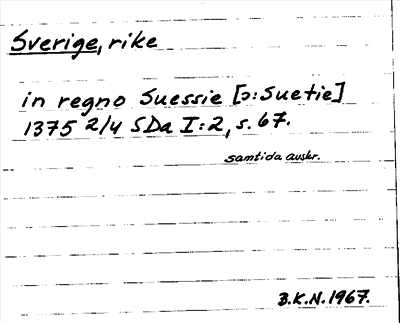 Sverige, rike
in regno Suessie [ɔ: Suetie]
1375 2/4 SDa I:2, s. 67.
samtida avskr.
B.K.N. 1967.